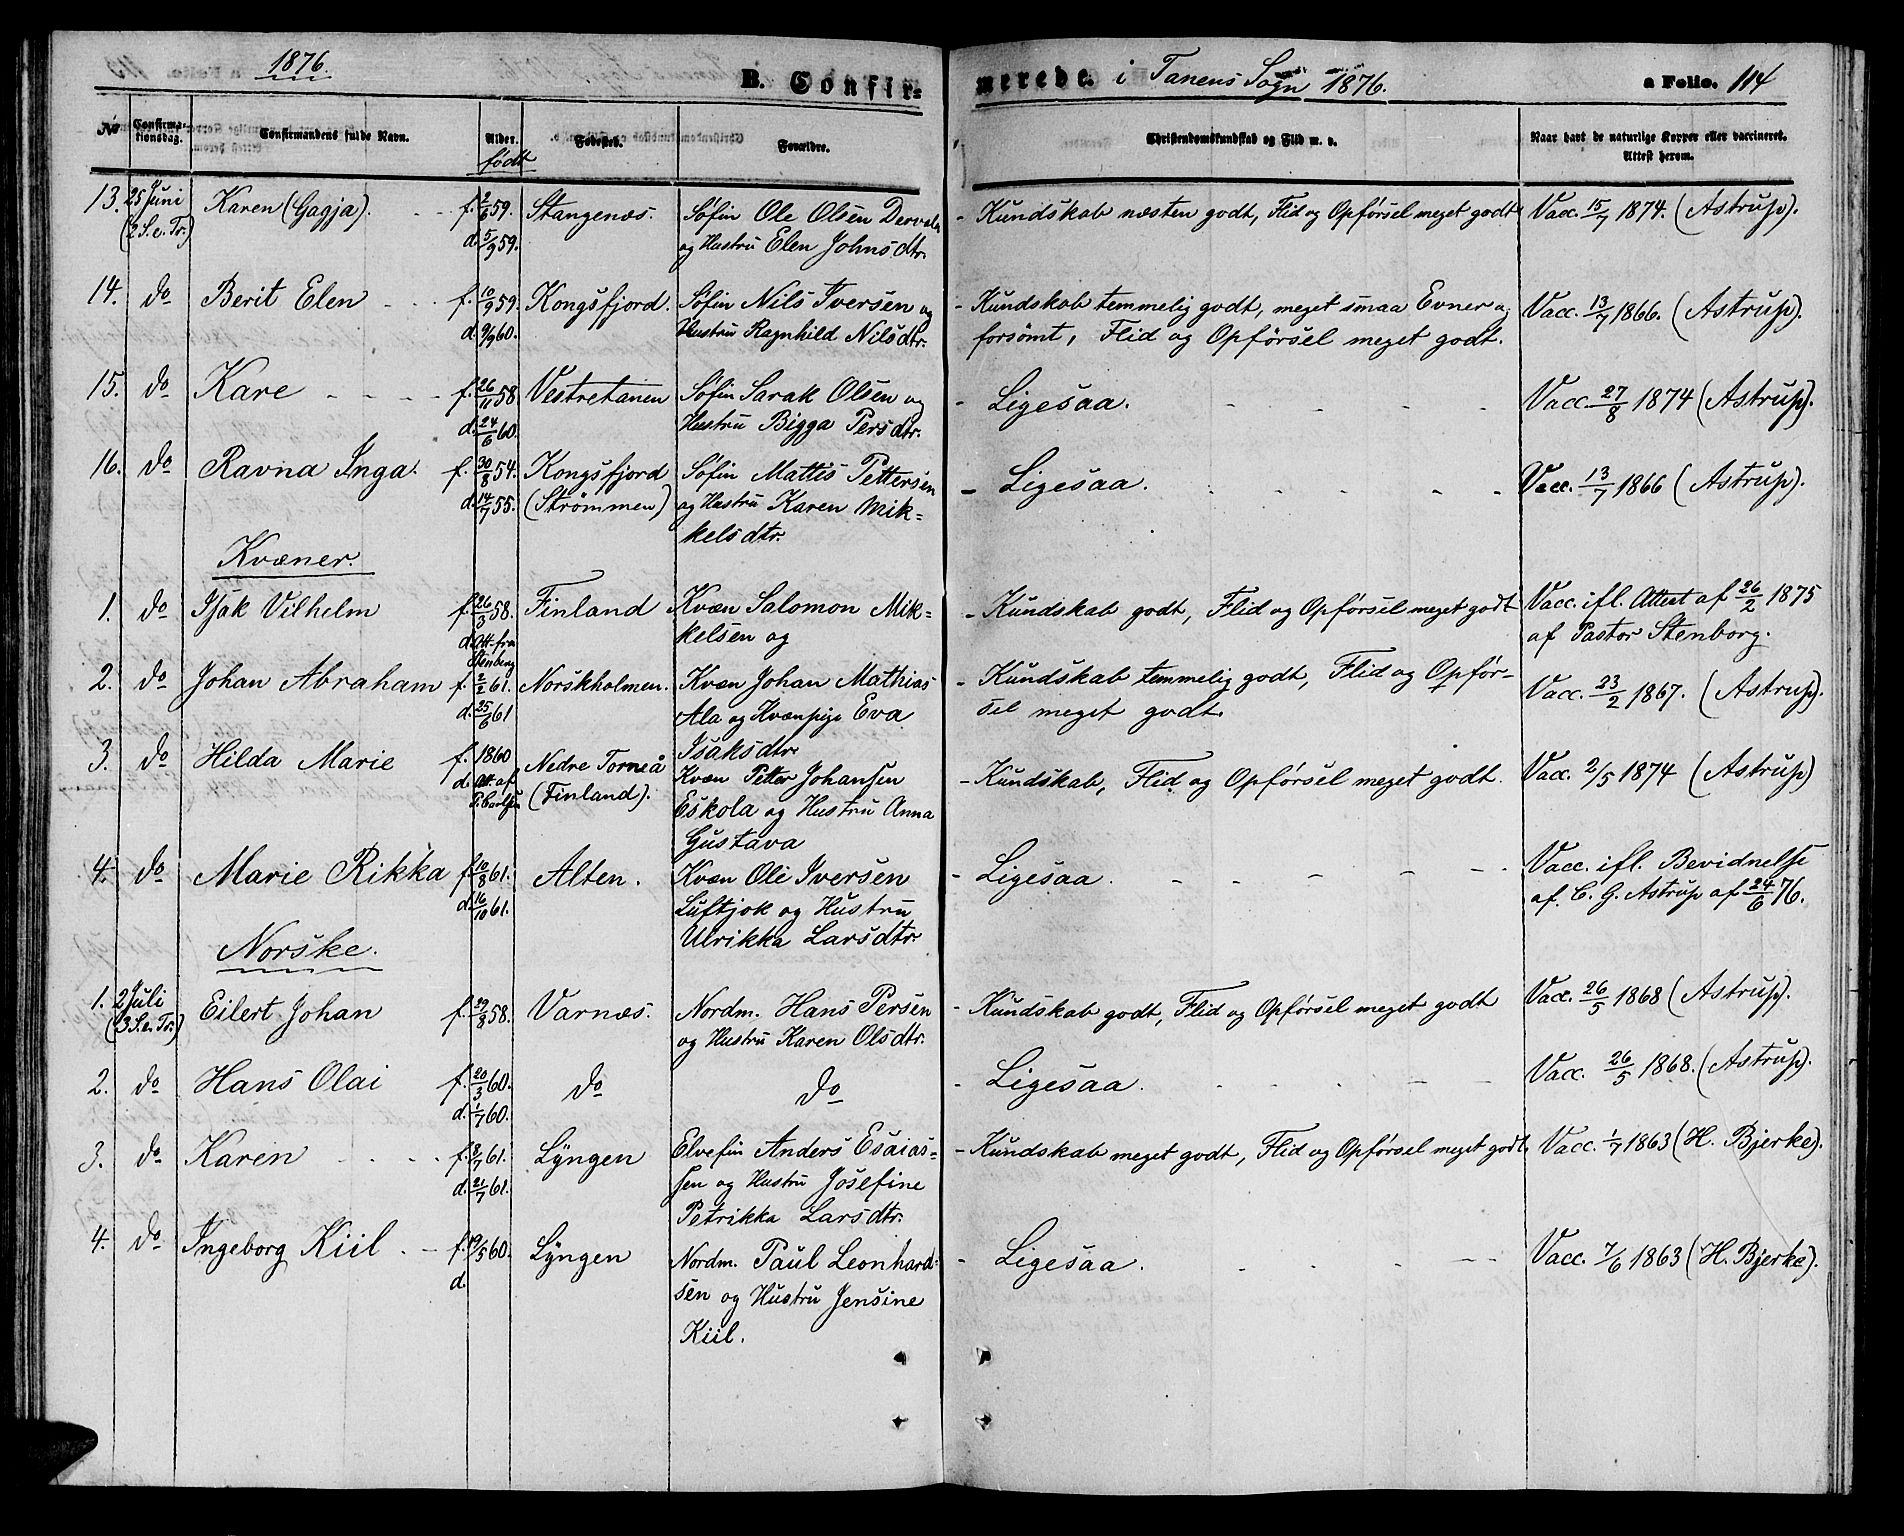 1876
B. Confir-
merede. i Tanens Sogn 1876.
a Folio. 114
No
Confirma-
tionsdag.
Confirmandens fulde Navn.
Alder.
født
Fødested.
Forældre.
Christendomskundskab og Flid m. v.
Naar havt de naturlige Kopper eller vaccineret.
Attest herom.
13. 25 Juni Karen (Gagja). f. 2/6 59. Stangenæs. Søfin Ole Olsen - Kundskab næsten godt, Flid og Opførsel meget godt Vacc. 15/7 1874. (Astrup).
(2 S. e. Tr.) d. 5/9 59. og Hustru Elen Johnsdtr.
14. do Berit Elen f. 10/9 59. Kongsfjord. Søfin Nils Iversen og - Kundskab temmelig godt, meget smaa Evner og Vacc. 13/7 1866. (Astrup).
d. 9/9 60. Hustru Ragnhild Nilsdtr. forsömt, Flid og Opførsel meget godt.
15. do Kare f. 26/11 58 Vestretanen Søfin Sarak Olsen og - Ligesaa. Vacc. 27/8 1874 (Astrup).
d. 24/6 60. Hustru Bigga Persdtr.
16. do Ravna Inga. f. 30/8 54. Kongsfjord Søfin Mattis Pettersen - Ligesaa. Vacc. 13/7 1866 (Astrup).
d. 14/7 55. (Strømmen) og Hustru Karen Mik-
kelsdtr.
Kvæner.
1. do Isak Vilhelm f. 26/3 58. Finland Kvæn Salomon Mik- - Kundskab godt, Flid og Opførsel meget godt Vacc. ifl. Attest af 26/2 1875
d. Att. fra kelsen og af Pastor Stenborg.
Stenberg
2. do Johan Abraham f. 2/2 61. Norskholmen. Kvæn Johan Mathias - Kundskab temmelig godt, Flid og Opfør- Vacc. 23/2 1867. (Astrup).
d. 25/6 61 Ala og Kvænpige Eva sel meget godt.
Isaksdtr.
3. do Hilda Marie f. 1860 Nedre Torneå Kvæn Petter Johansen - Kundskab, Flid og Opførsel meget godt. Vacc. 2/5 1874 (Astrup)
d. Att. af (Finland). Eskola og Hustru Anna
P. Carlsen Gustava
4. do Marie Rikka f. 10/8 61. Alten. Kvæn Ole Iversen - Ligesaa. Vacc. ifl. Bevidnelse
d. 16/10 61. Luftjok og Hustru af C. G. Astrup af 24/6 76.
Ulrikka Larsdtr.
Norske.
1. 2 Juli Eilert Johan f. 29/8 58. Varnæs. Nordm. Hans Persen - Kundskab godt, Flid og Opførsel meget godt Vacc. 26/5 1868 (Astrup).
(3 S. e. Tr.) og Hustru Karen Olsdtr.
2. do Hans Olai f. 20/3 60. do do - Ligesaa. Vacc. 26/5 1868. (Astrup).
d. 1/7 60.
3. do Karen f. 3/7 61. Lÿngen Elvefin Anders Esaias- - Kundskab meget godt, Flid og Opførsel meget godt. Vacc. 1/7 1863 (H. Bjerke).
d. 21/7 61. sen og Hustru Josefine
Petrikka Larsdtr.
4. do Ingeborg Kiil. f. 19/5 60. Lÿngen Nordm. Paul Leonhard- - Ligesaa. Vacc. 7/6 1863 (H. Bjerke).
d. sen og Hustru Jensine
Kiil.